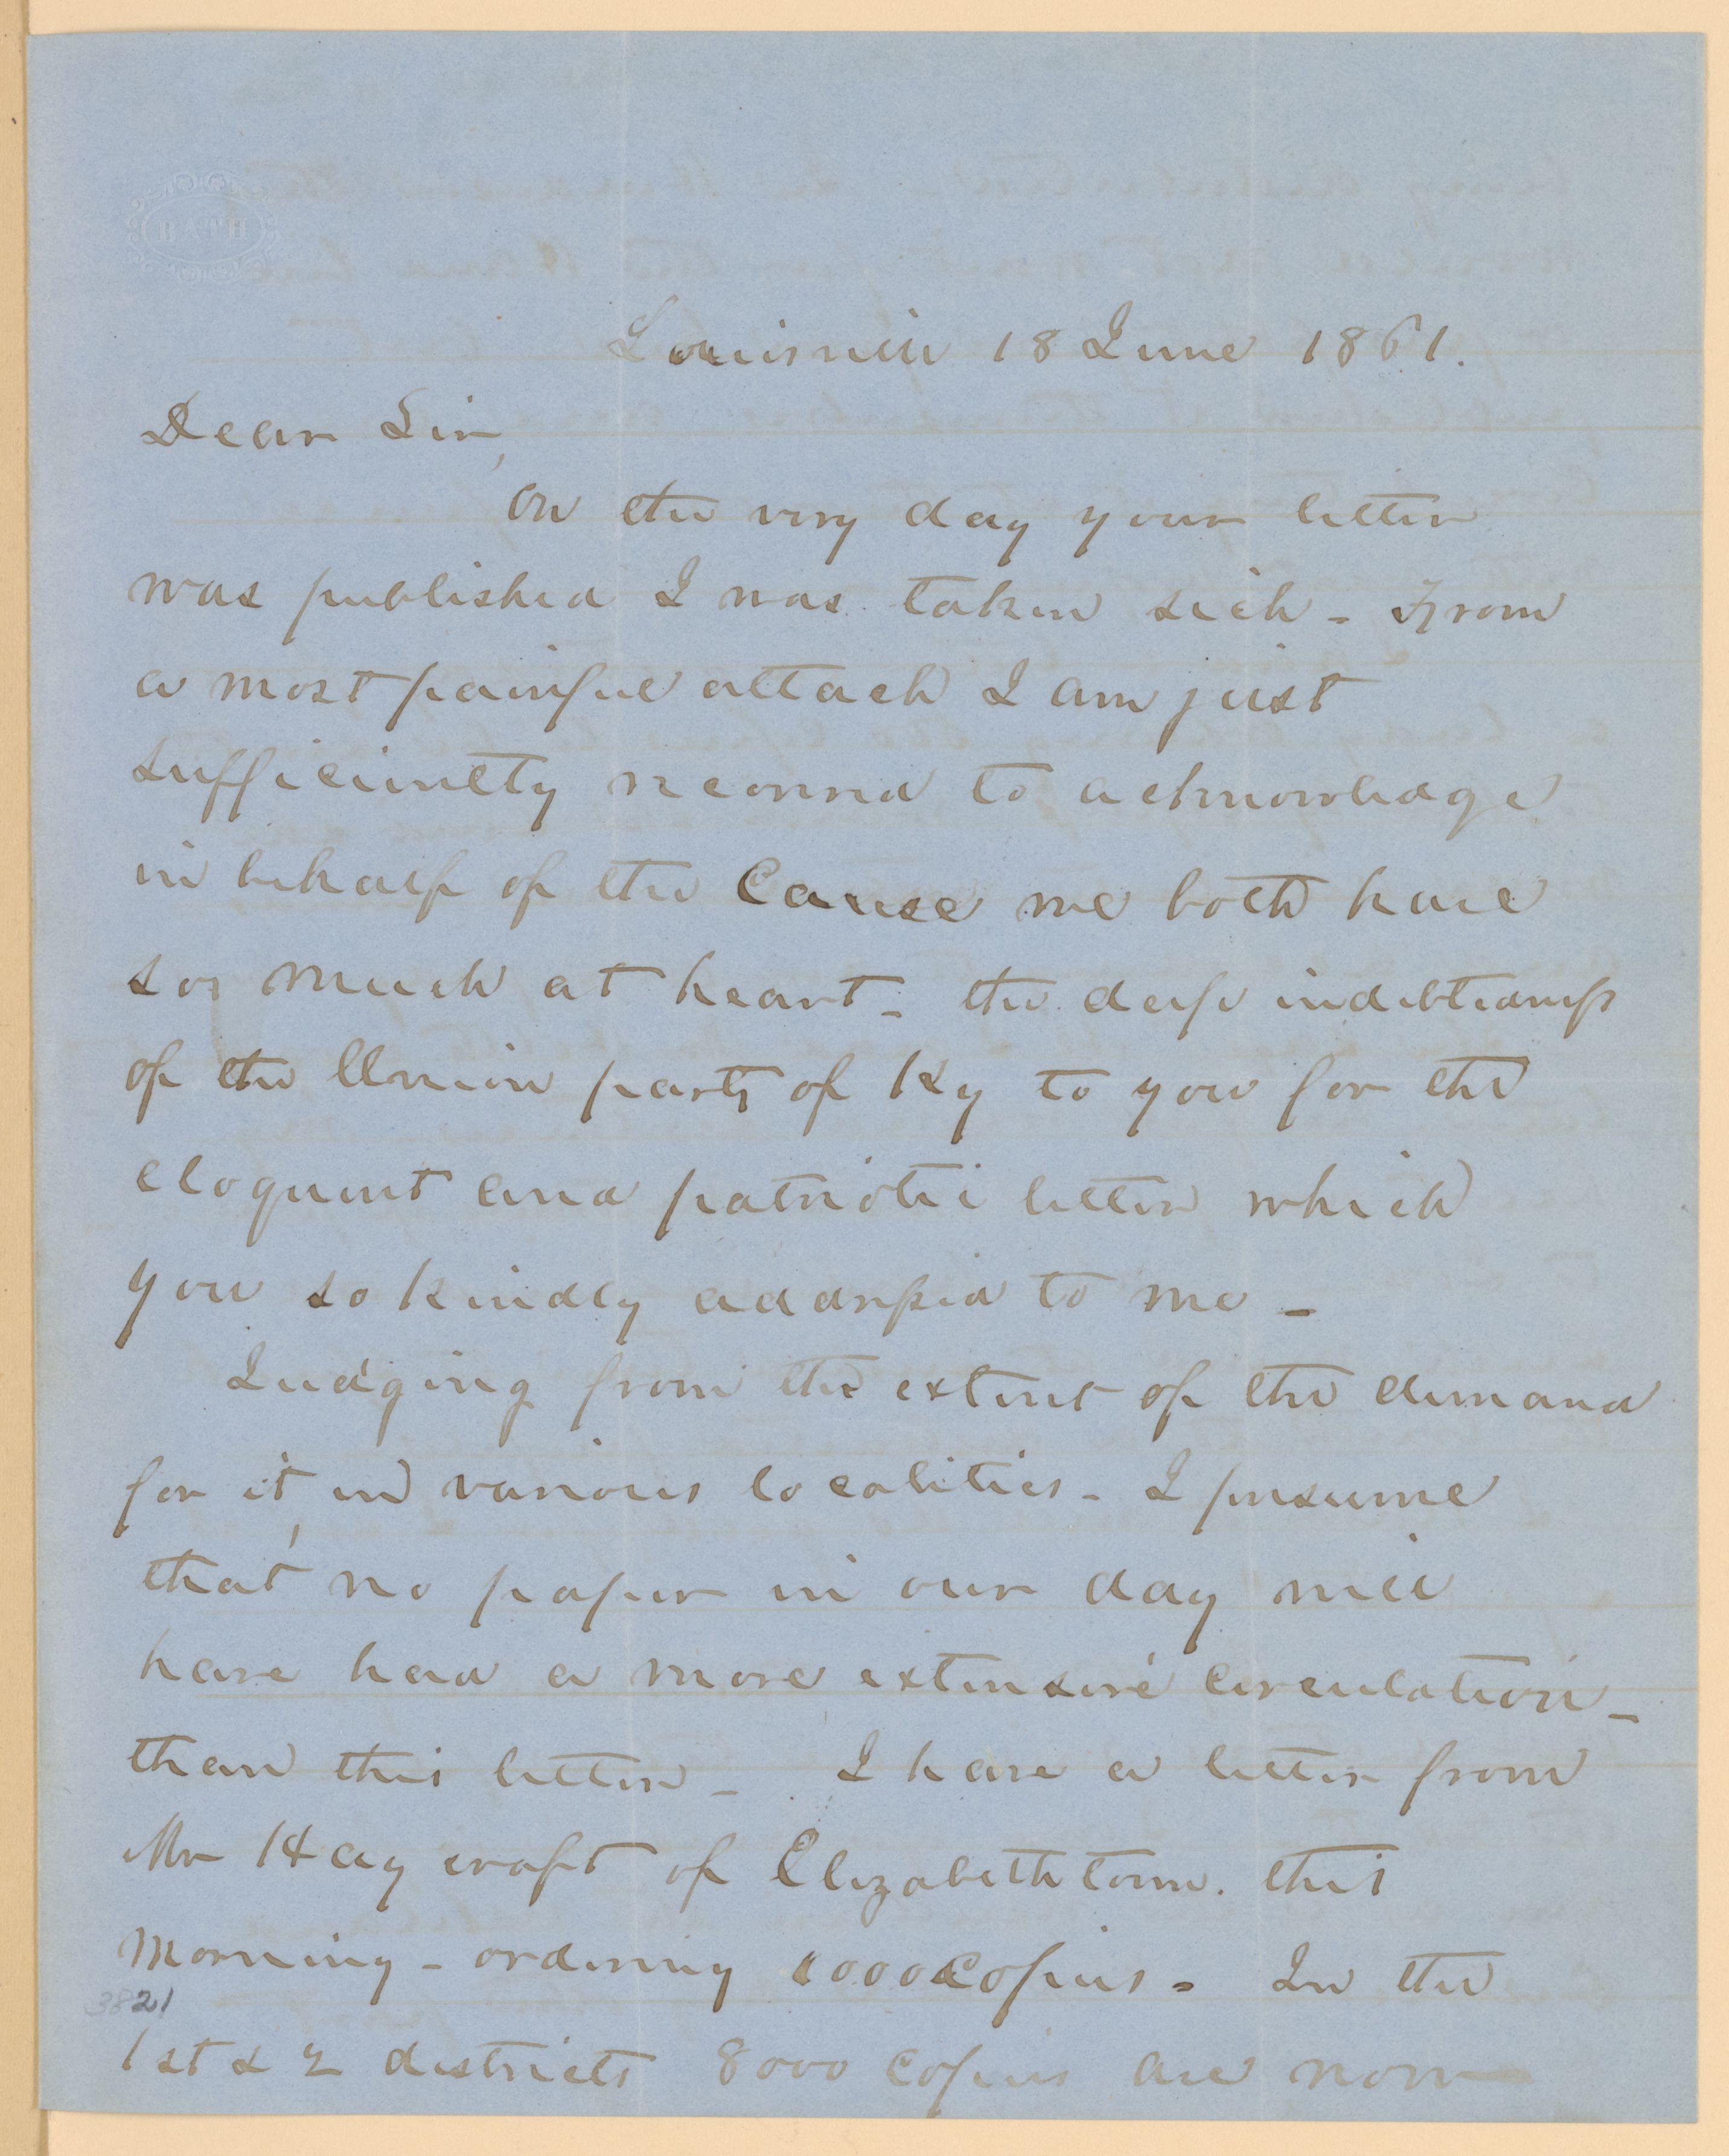 BATH
Louisville 18 June 1861.
Dear Sir,
On the very day your letter
was published I was taken sick - From
a most painful attack I am just
sufficiently recovered to acknowledge
in behalf of the Cause we both have
so much at heart - the deep indebtedness
of the Union party of Ky to you for the
eloquent and patriotic letter which
you so kindly addressed to me -
Judging from the extent of the demand
for it, in various localities - I presume
that no paper in our day will
have had a more extensive circulation -
than this letter - I have a letter from
Mr Haycraft of Elizabethtown. this
morning - ordering 1000 Copies - In the
3821
1st & 2 districts 8000 Copies are now